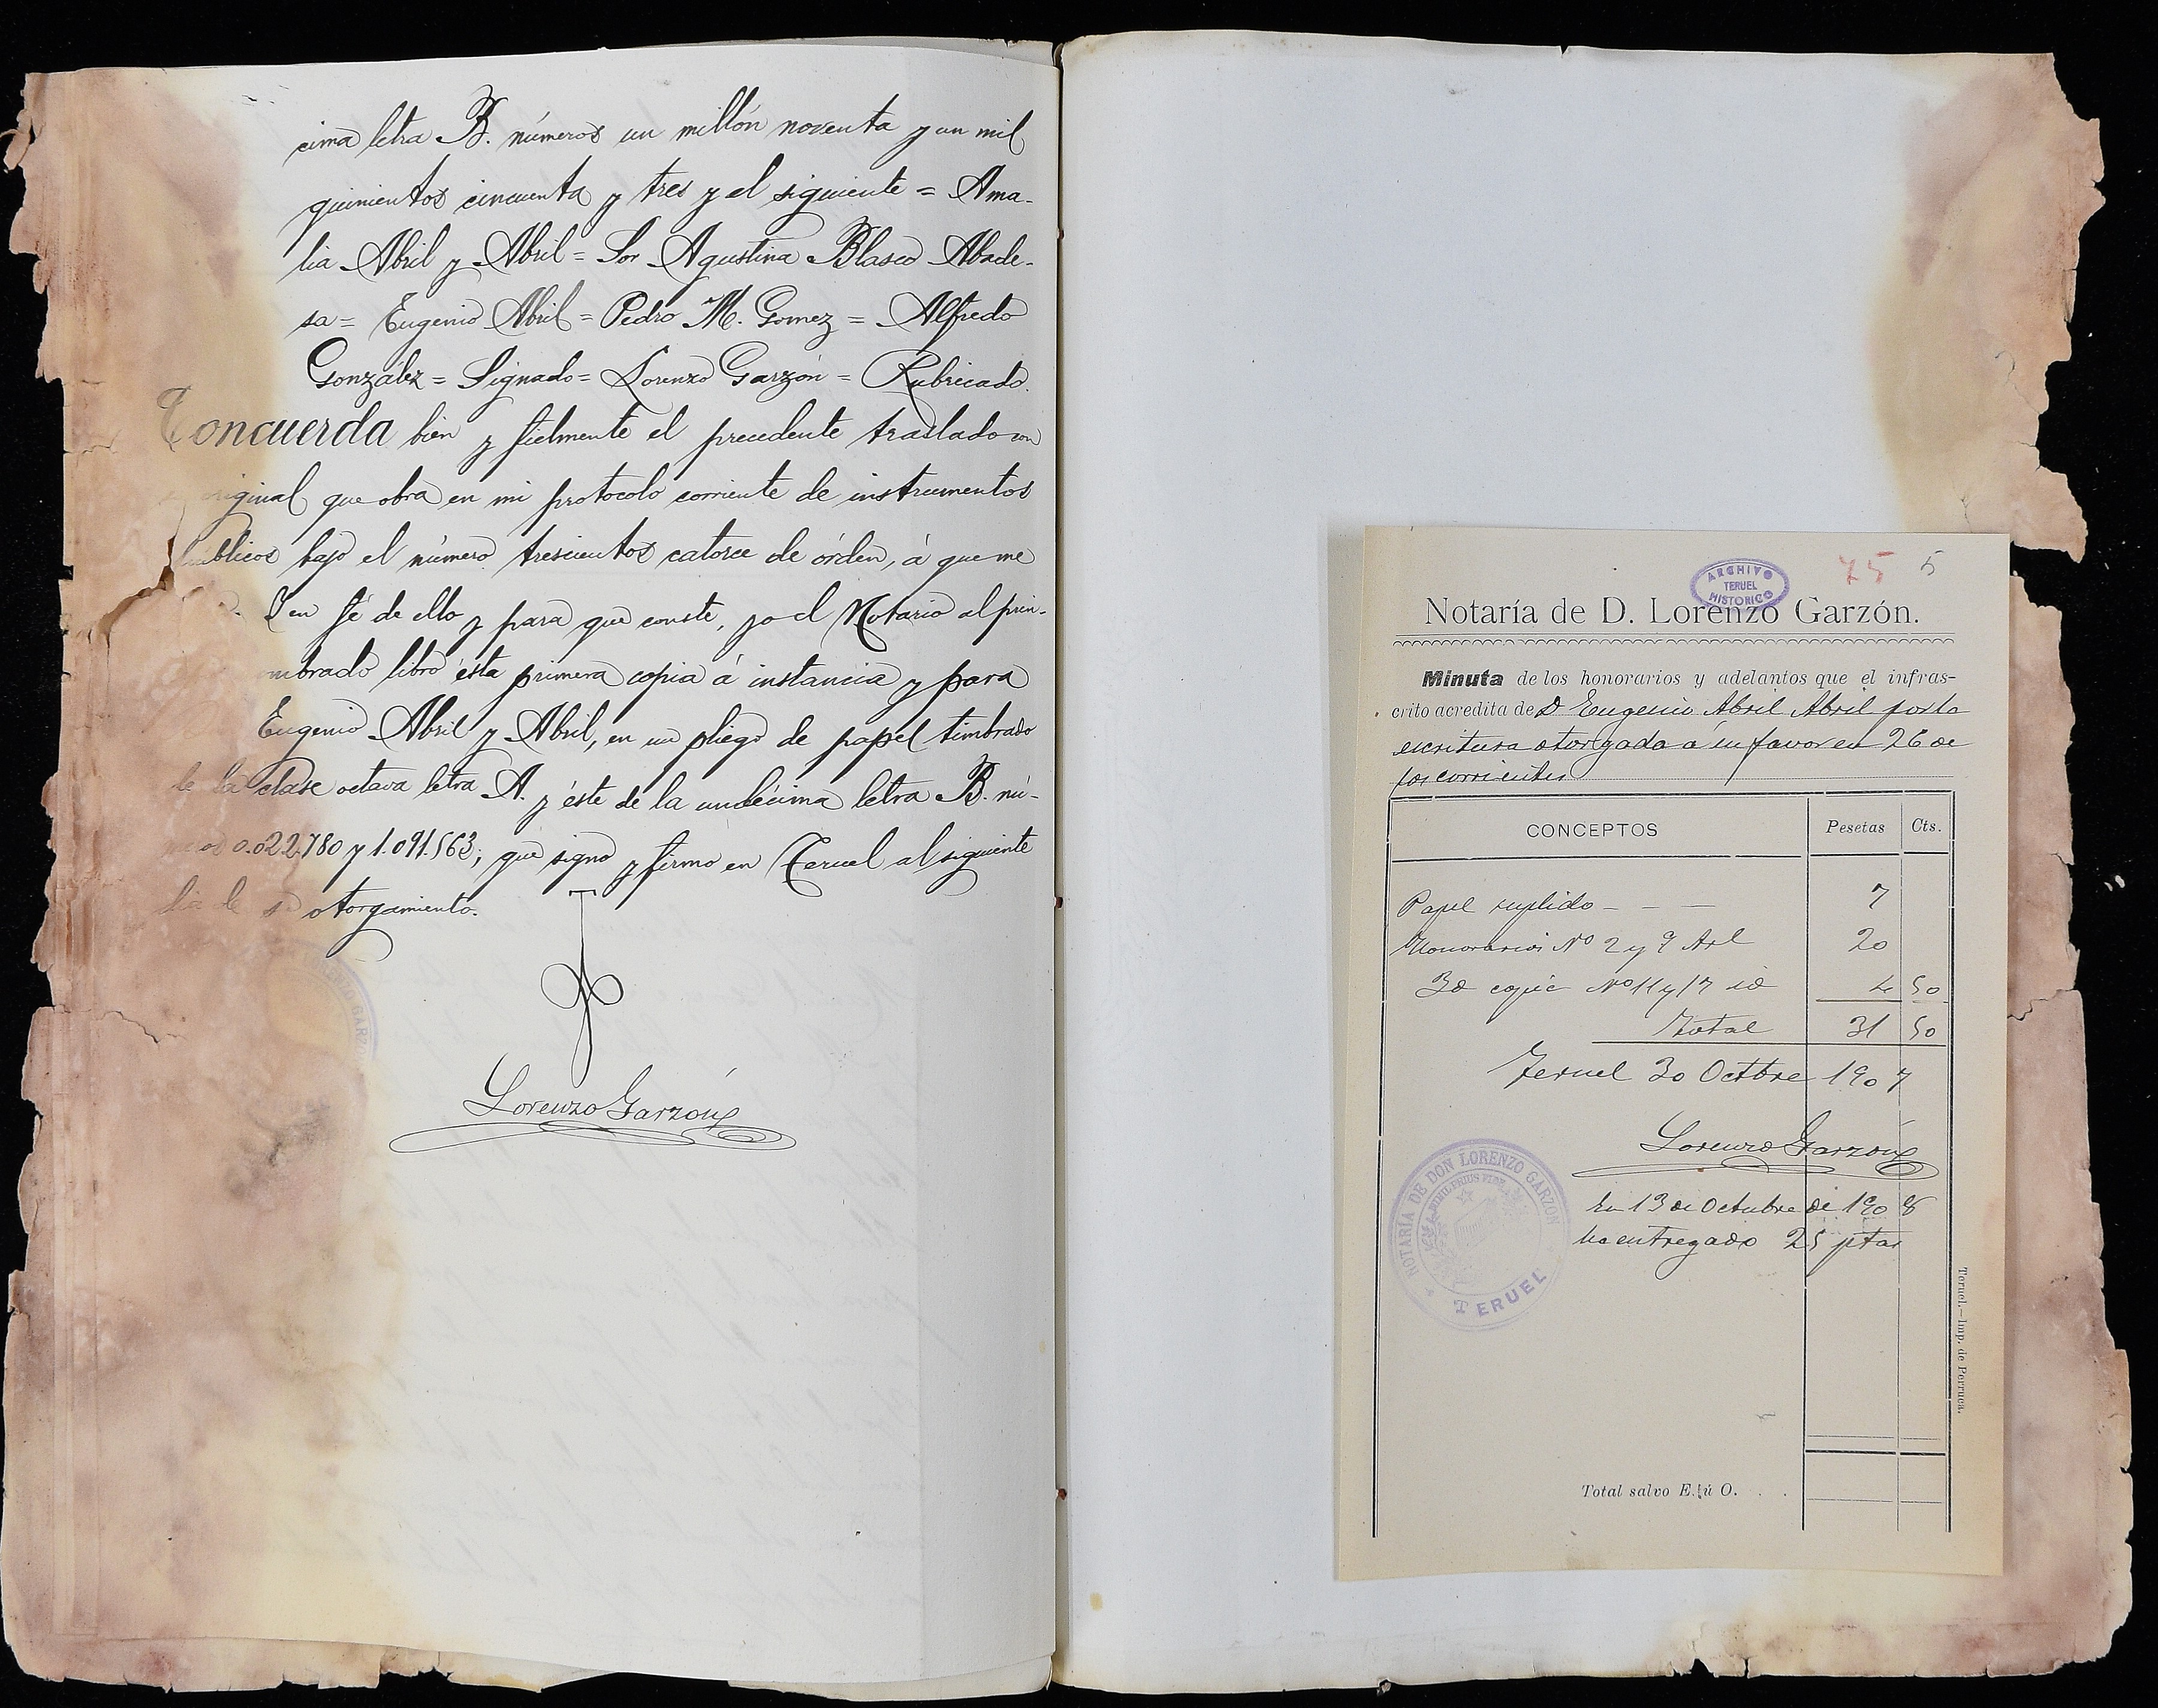 cima letra B. números un millón noventa y un mil
quinientos cincuenta y tres y el siguiente = Ama-
lia Abril y Abril = Sor Agustina Blasco Abade-
sa = Eugenio Abril = Pedro M. Gomez = Alfredo
González = Signado = Lorenzo Garzón = Rubricado.
Concuerda bien y fielmente el precedente traslado con
original que obra en mi protocolo corriente de instrumentos
públicos bajo el número trescientos catorce de órden, á que me
Y en fé de ello y para que conste, yo el Notario al prin-
ombrado libro ésta primera copia á instancia y para
Eugenio Abril y Abril, en un pliego de papel timbrado
de la clase octava letra A. y éste de la undécima letra B. nú-
meros 0.022.780 y 1.091.563; que signo y firmo en Teruel al siguiente
dia de su otorgamiento.
Lorenzo Garzón
ARCHIVO
TERUEL
HISTORICO
75 5
Notaría de D. Lorenzo Garzón.
Minuta de los honorarios y adelantos que el infras-
crito acredita de D Eugenio Abril Abril por la
escritura otorgada a su favor en 26 de
los corrientes
CONCEPTOS Pesetas Cts.
Papel suplido - - - 7
Honorarios Nº 2 y 9 Arl 20
Id copia Nº 11 y 17 id 4 50
Total 31 50
Teruel 30 Octbre 1907
Lorenzo Garzón
NOTARÍA DE DON LORENZO GARZON
NIHIL PRIUS FIDE
TERUEL
En 13 de Octubre de 1908
ha entregado 25 ptas
Total salvo E. ú O. . .
Teruel.—Imp. de Perruca.